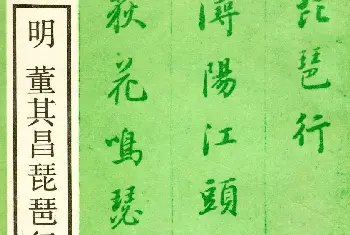 琵琶行
潯陽江頭
荻花鳴瑟
明 董其昌琵琶